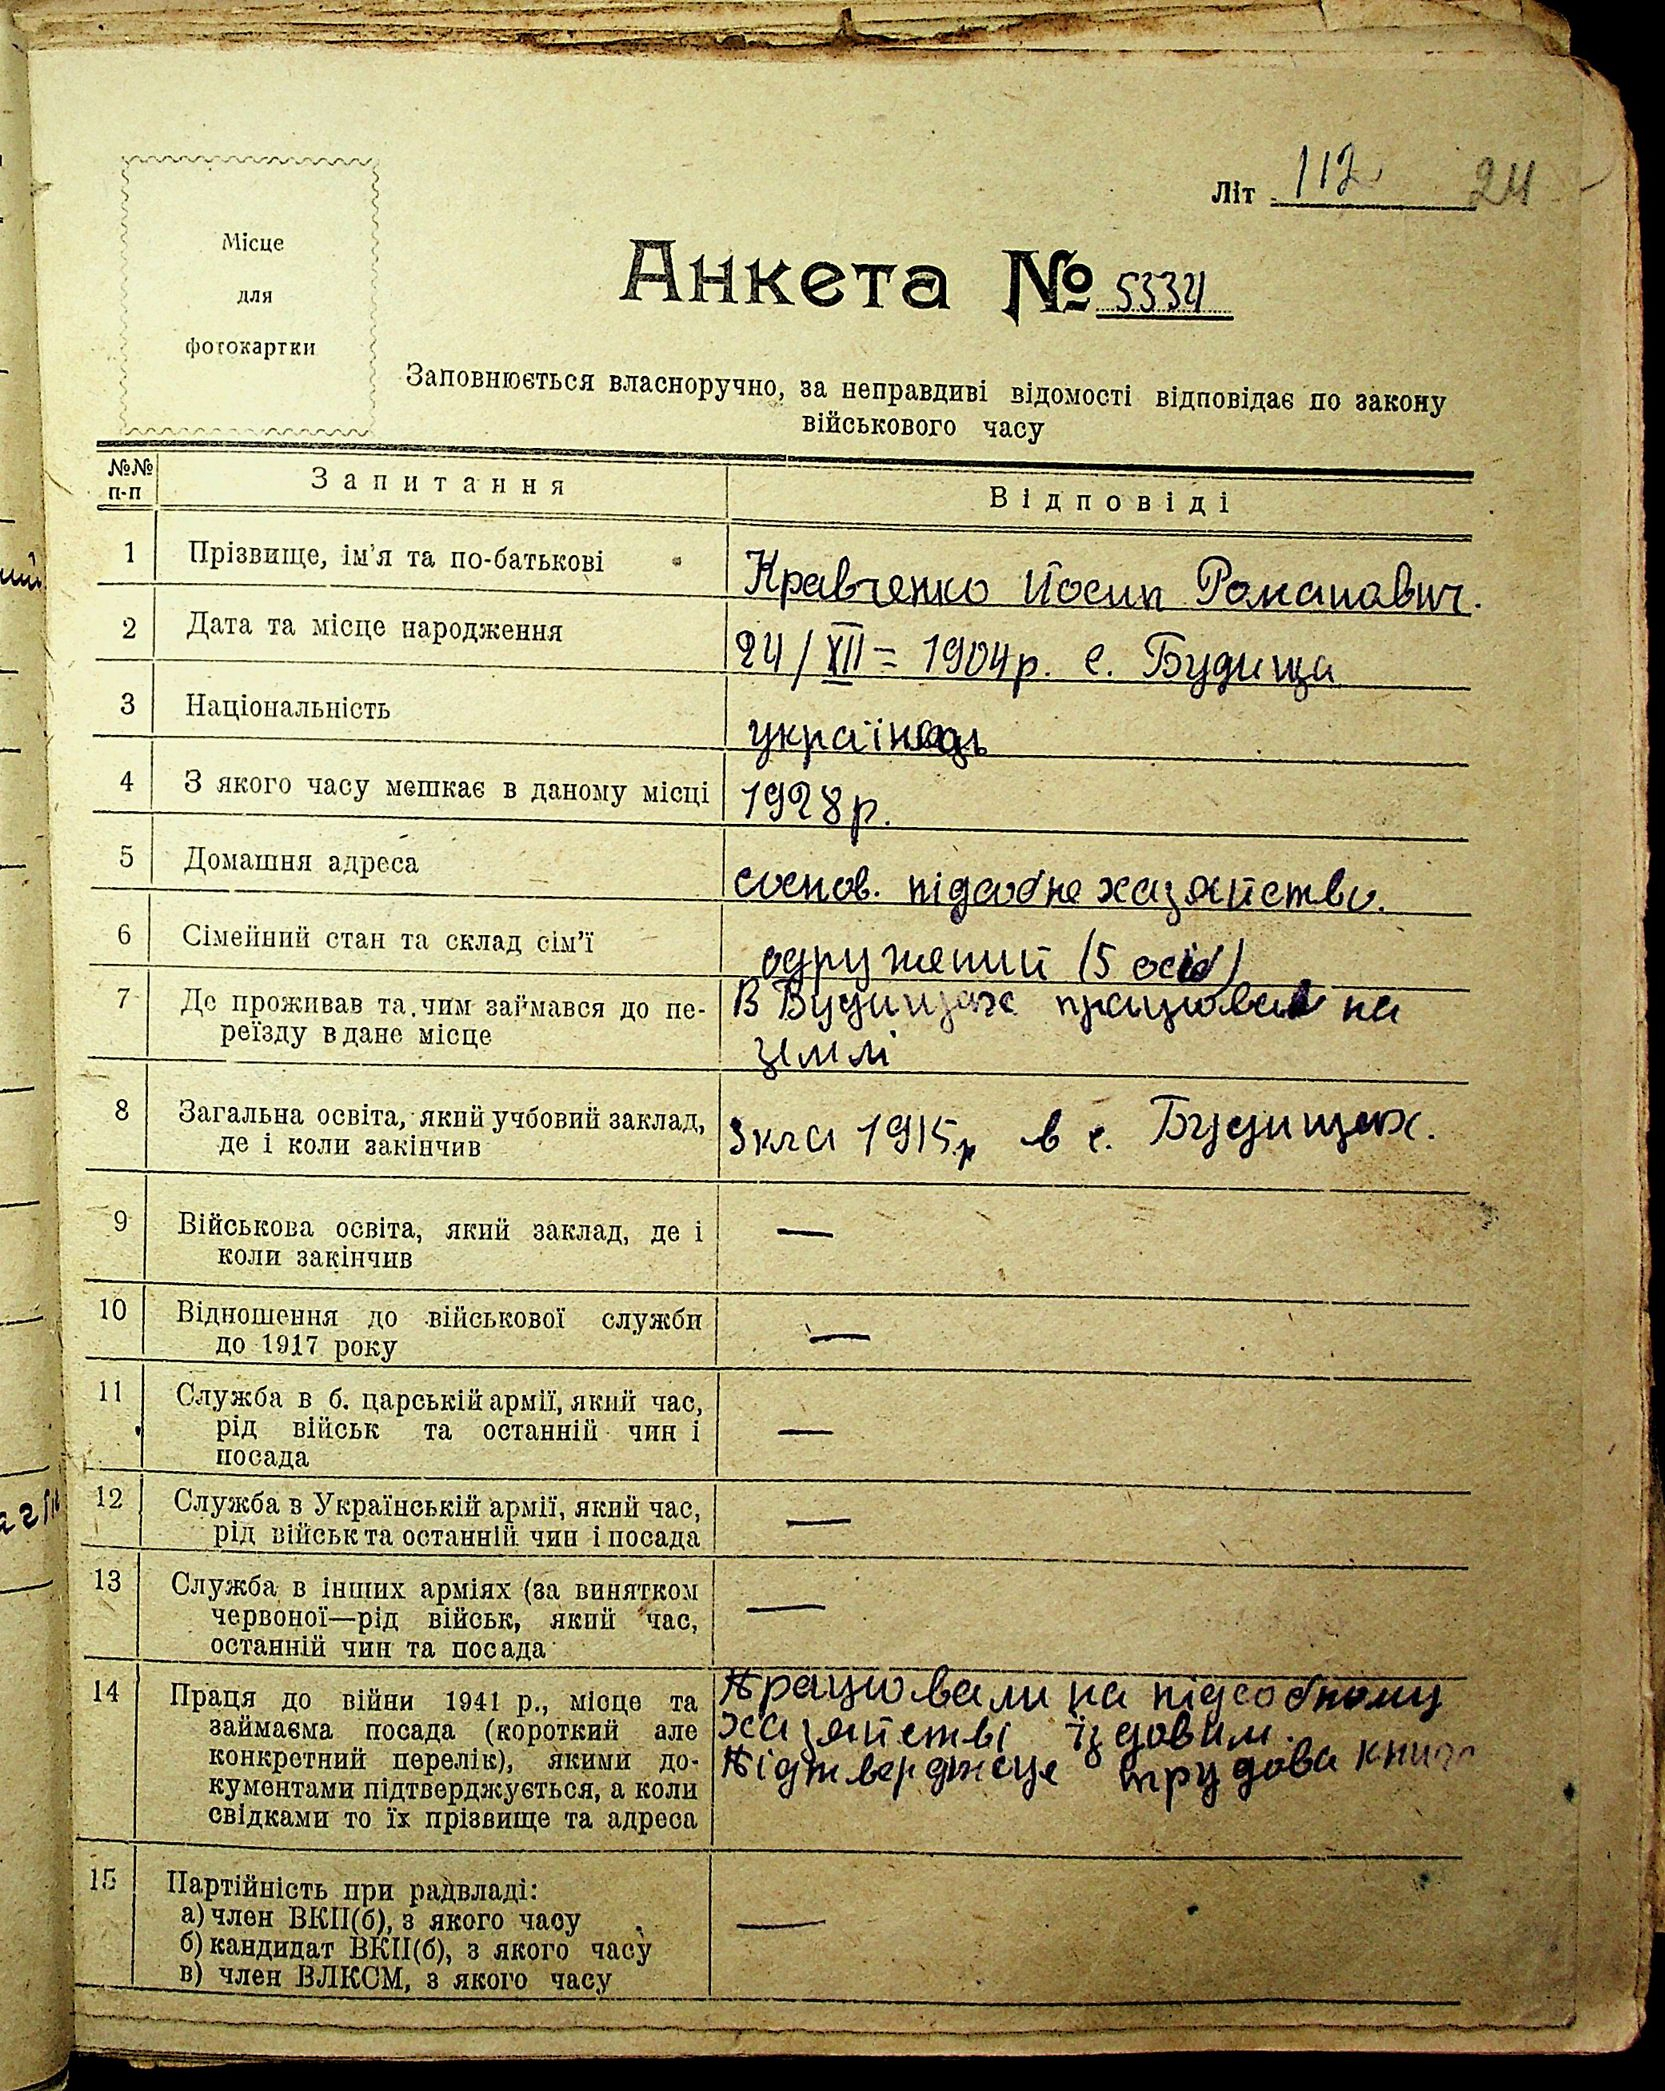 Літ 112 24
Місце
для
фотокартки
Анкета № 53321
Заповнюється власноручно, за неправдиві відомості відповідає по закону
військового часу
№№ п-п Запитання Відповіді
1 Прізвище, ім'я та по-батькові Кравченко Йосип Романович.
2 Дата та місце народження 24/XII = 1904р. с. Будища
3 Національність українець
4 З якого часу мешкає в даному місці 1928р.
5 Домашня адреса соснов. підсобне хазяйство.
6 Сімейний стан та склад сім'ї одружений (5 осіб)
7 Де проживав та чим займався до пе- В Будищах працював на
реїзду в дане місце землі
8 Загальна освіта, який учбовий заклад, 3 кла 1915р в с. Будищах.
де і коли закінчив
9 Військова освіта, який заклад, де і —
коли закінчив
10 Відношення до військової служби —
до 1917 року
11 Служба в б. царській армії, який час, —
рід військ та останній чин і
посада
12 Служба в Українській армії, який час, —
рід військ та останній чин і посада
13 Служба в інших арміях (за винятком —
червоної—рід військ, який час,
останній чин та посада
14 Праця до війни 1941 р., місце та Працювали на підсобному
займаєма посада (короткий але хазяйстві їздовим.
конкретний перелік), якими до- Підтверджеце трудова книга
кументами підтверджується, а коли
свідками то їх прізвище та адреса
15 Партійність при радвладі: —
а) член ВКП(б), з якого часу
б) кандидат ВКП(б), з якого часу
в) член ВЛКСМ, з якого часу